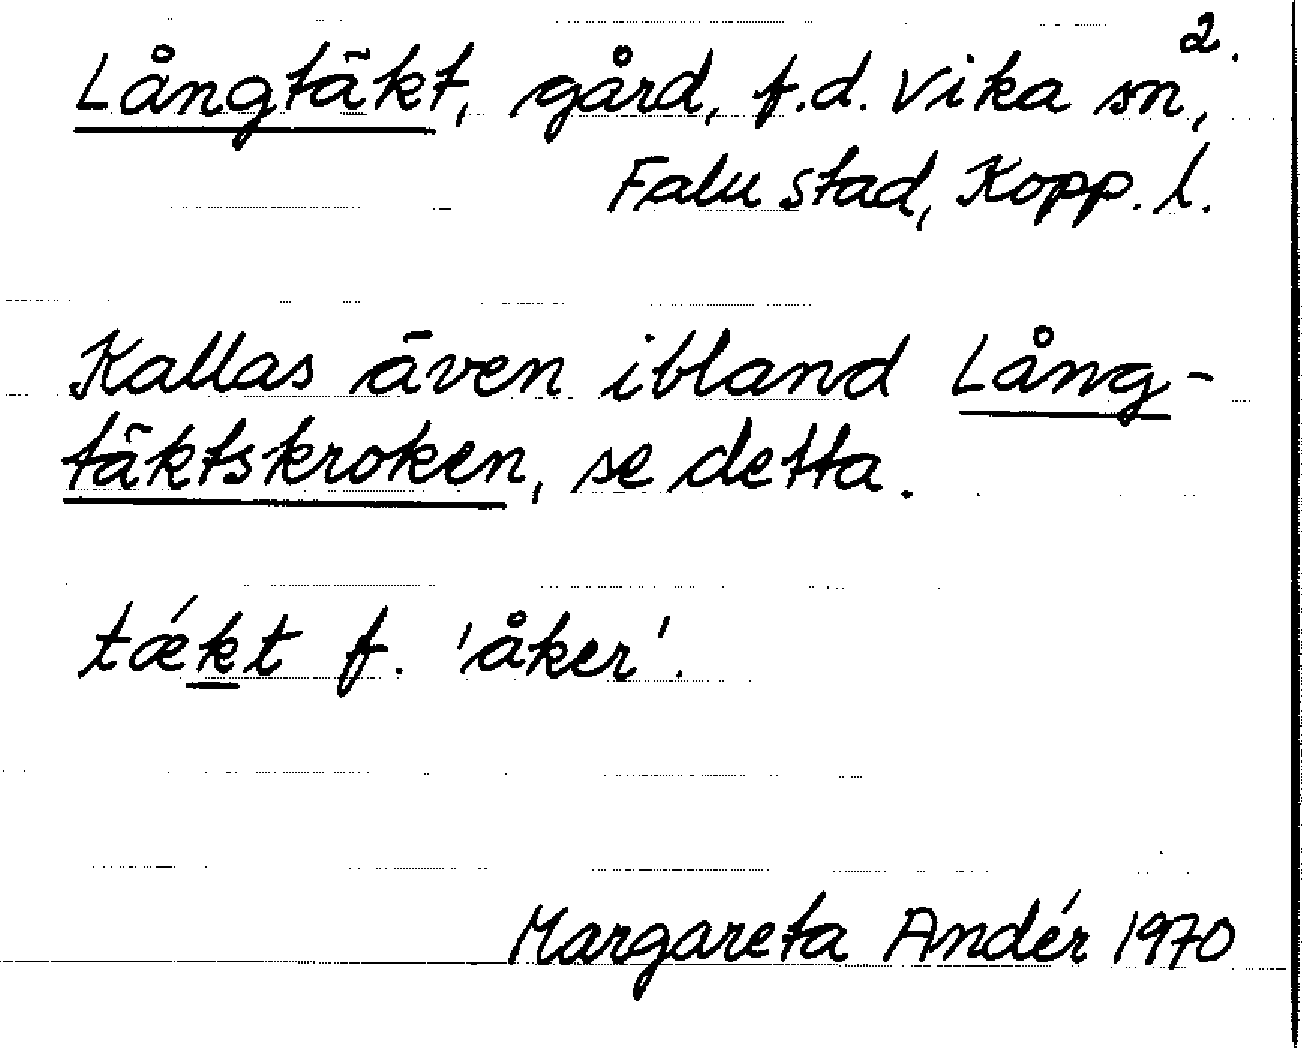 2.
Långtäkt, gård, f.d. Vika sn,
Falu stad, Kopp. l.
Kallas även ibland Lång-
täktskroken, se detta.
tǽkt f. 'åker'.
Margareta Andér 1970